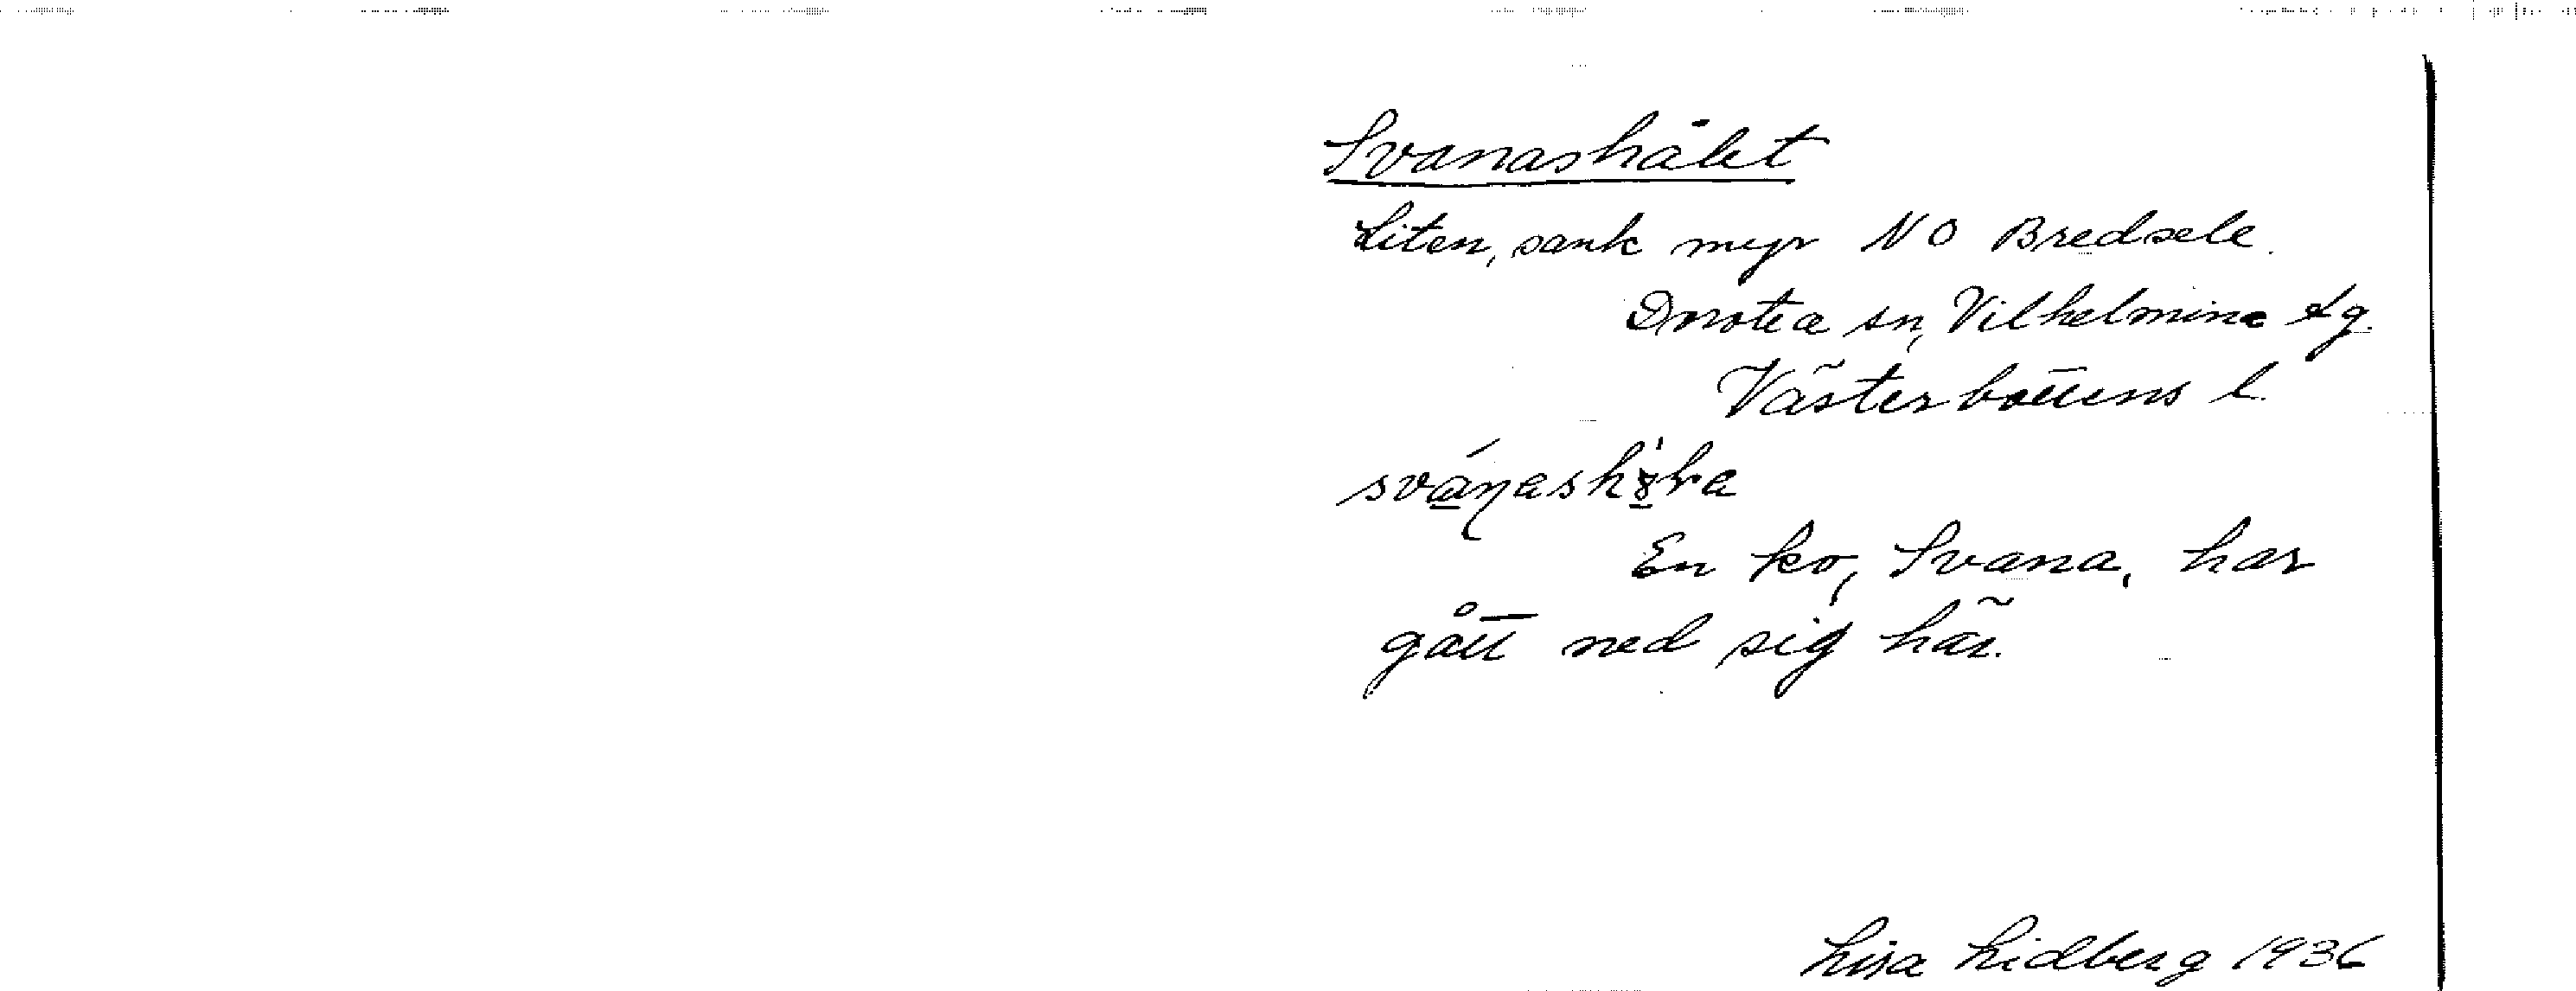 Svanashålet
Liten, sank myr NO Bredsele.
Dorotea sn, Vilhelmina tg.
Västerbottens l.
En ko, Svana, har
gått ned sig här.
Lisa Lidberg 1936